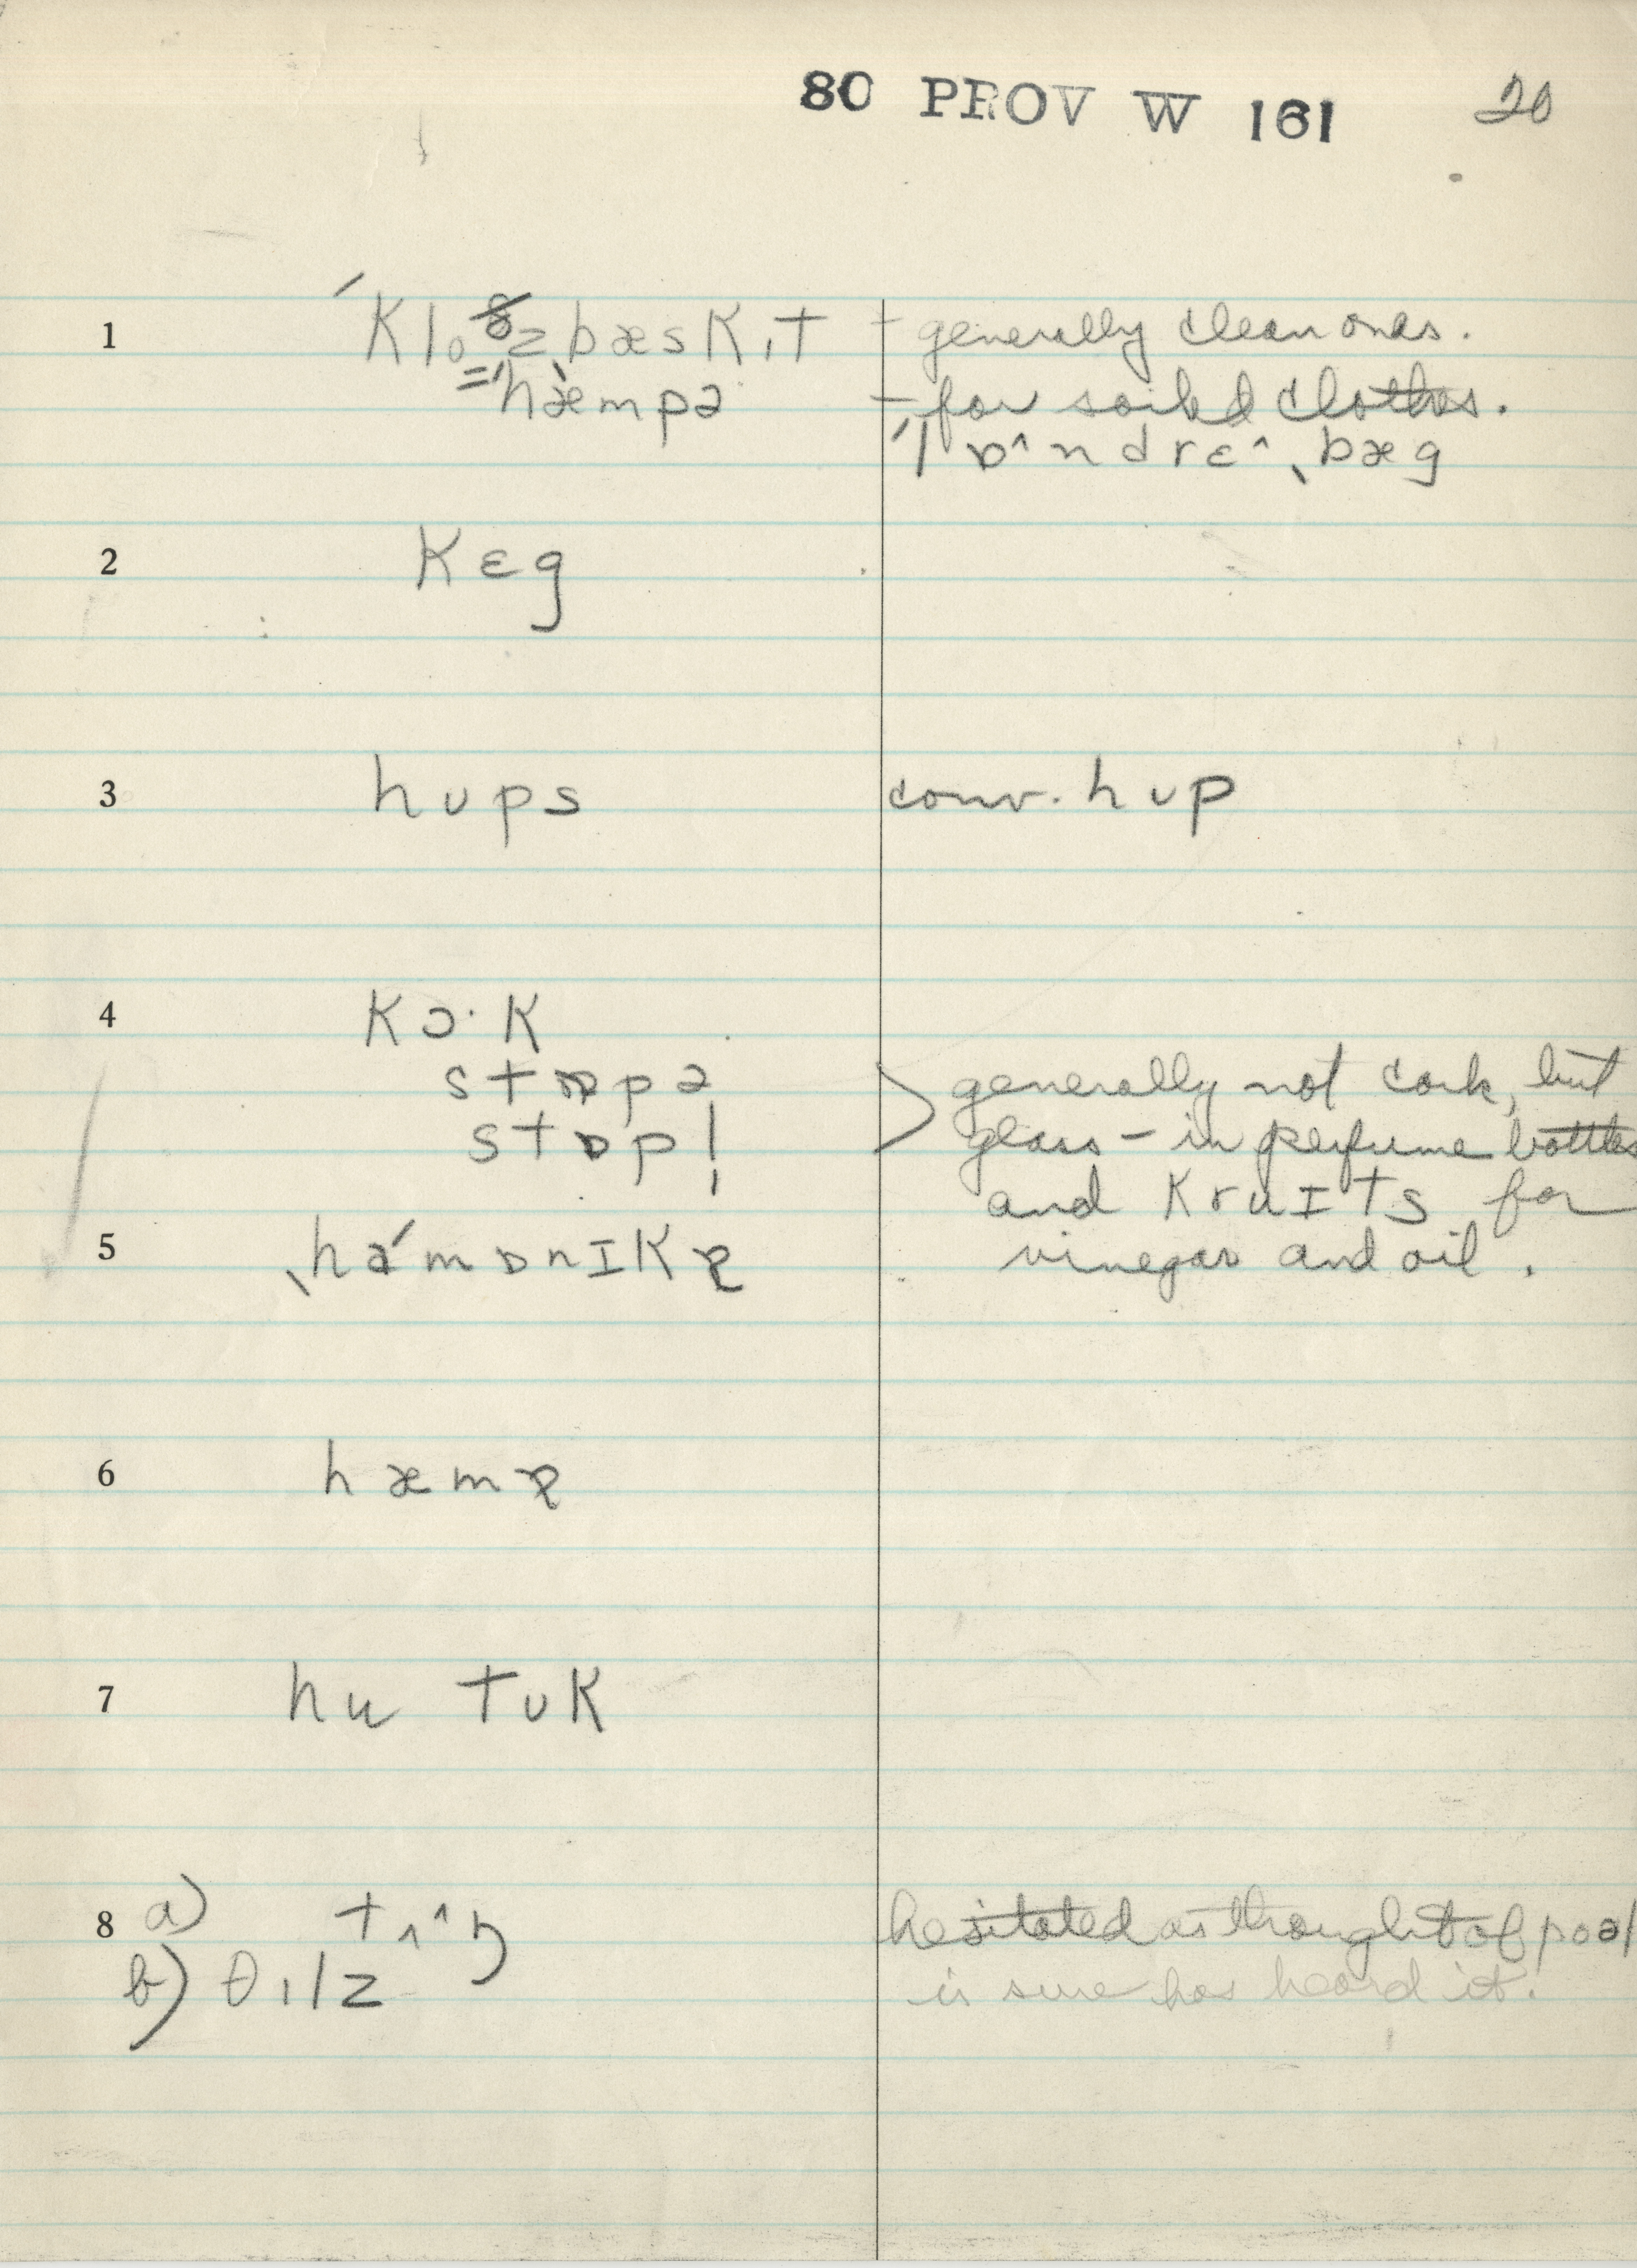 80 PROV W 161 20
1 ˊklozˌbæskɪt - generally clean ones.
=ˈhæmpə - for soiled clothes.
ˊlɒ^ndrɛ^ˌbæg
2 kɛg
3 hʊps conv. hʊp
4 kɔ·k
stɒpə generally not cork, but
stɒpl̩ glass - in perfume bottles
and kruɪts for
5 ˌhaˊmɒnɪkə vinegar and oil.
6 hæmɚ
7 hu tʊk
8 a) tʌ^ŋ hesitated as thought of pool
b) θɪlz is sure has heard it.